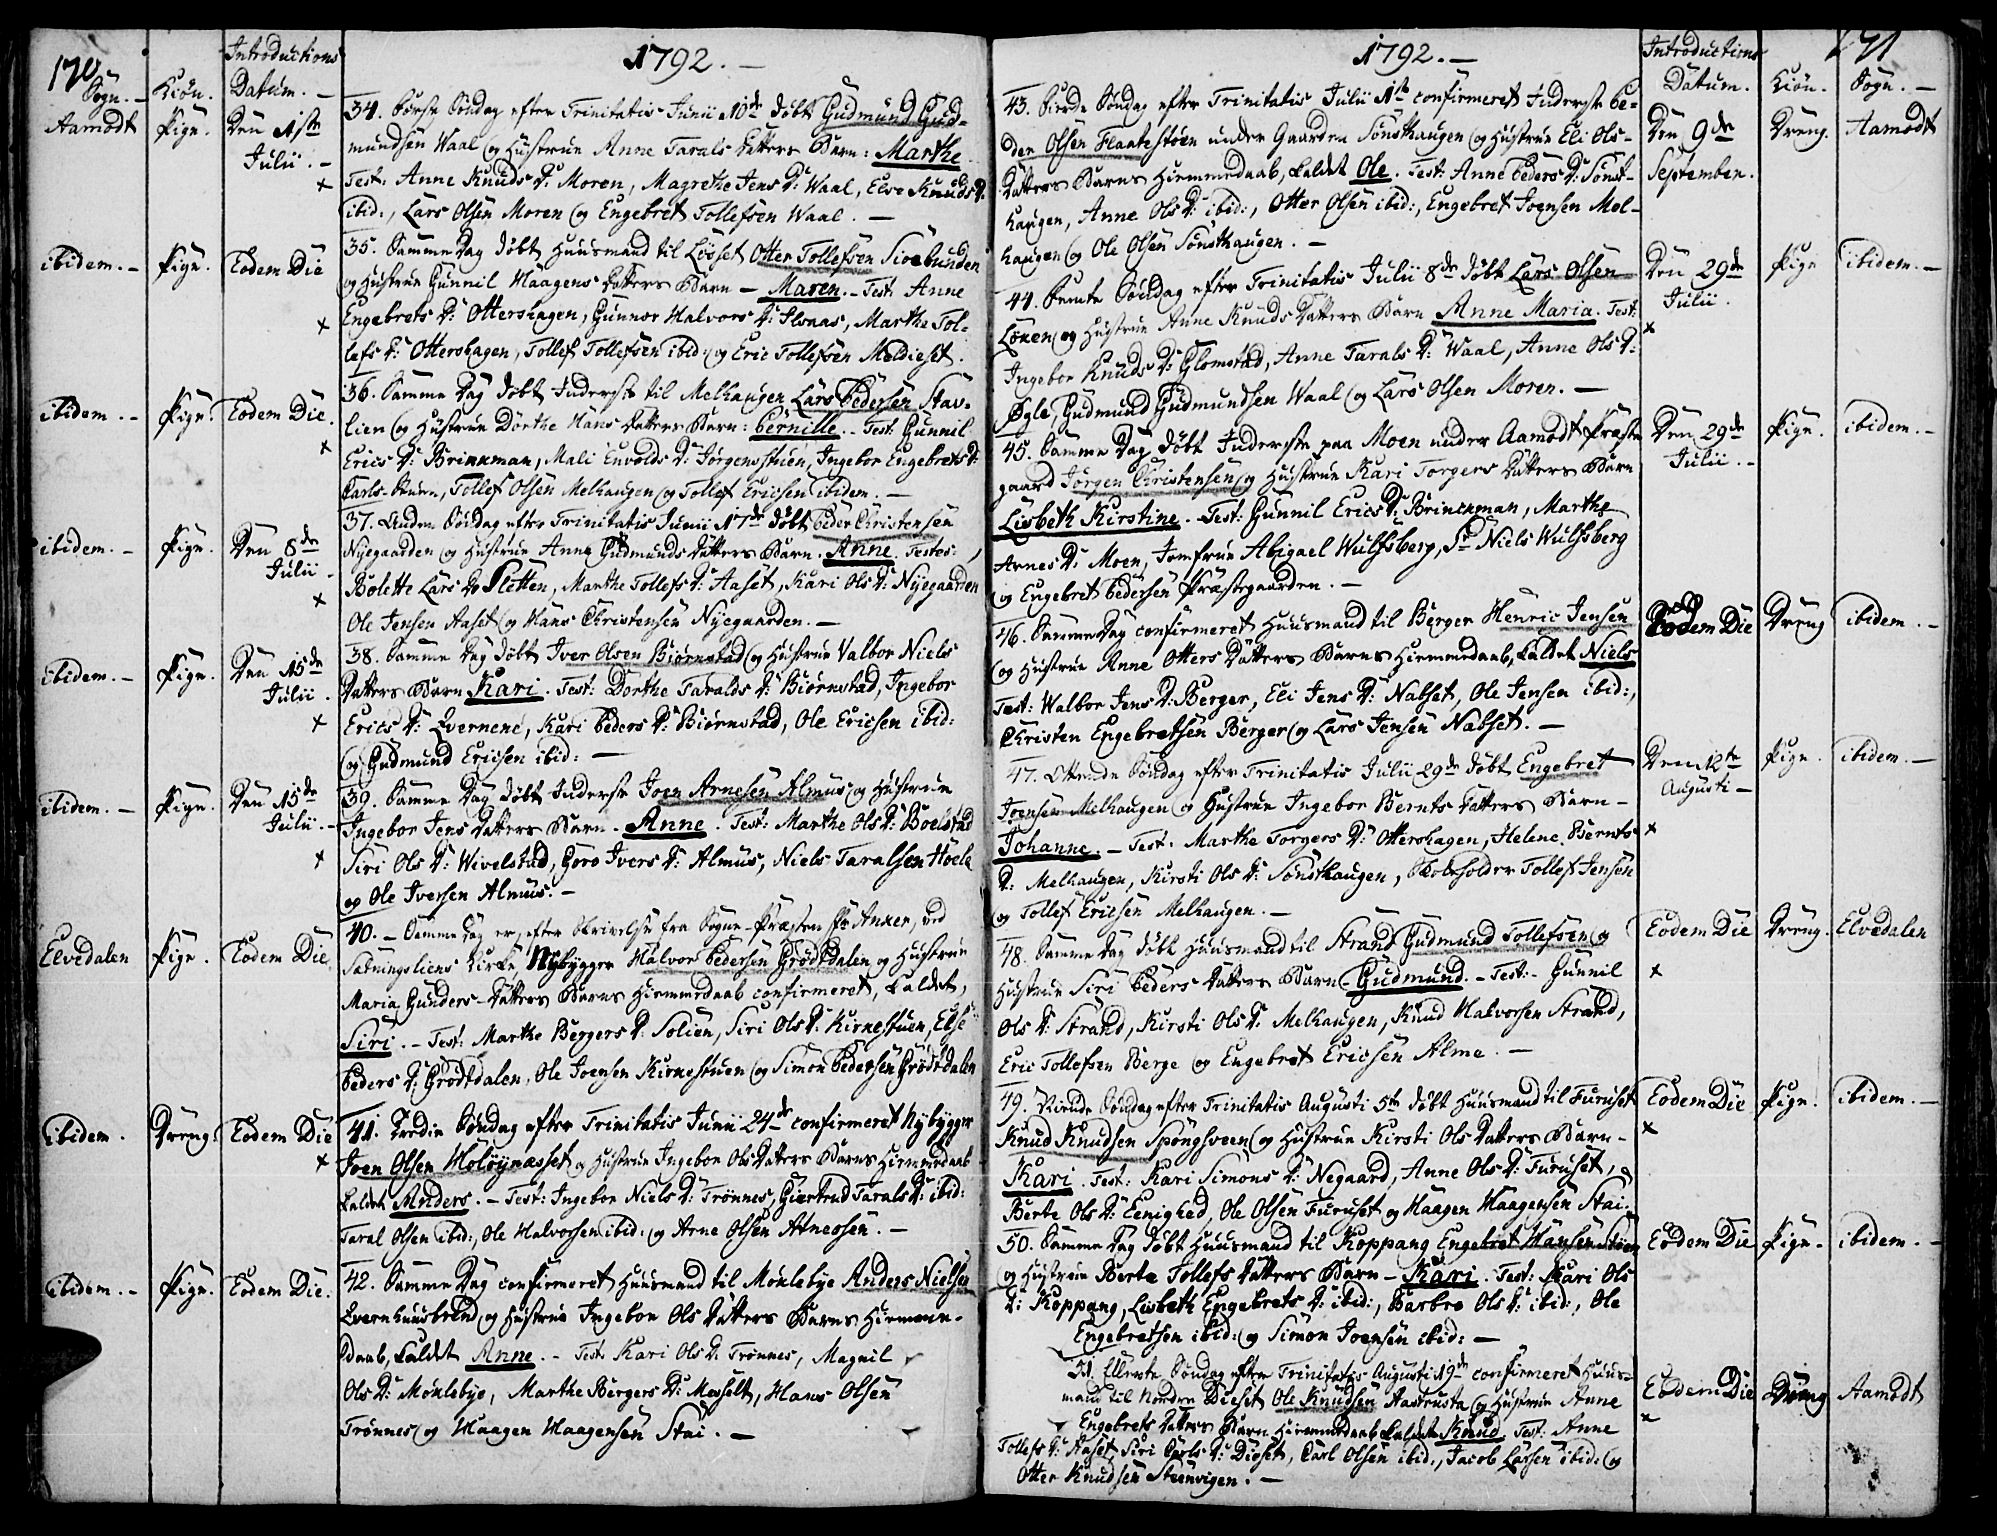 170
1792. —
Sogn. —
Kiön.
Introductions
Datum. —
Aamodt
Pige.
Den 1ste
Julii. —
34. Förste Söndag efter Trinitatis Junii 10de döbt Gudmund Gud-
mundsen Waal og Hustrue Anne Tarals Datters Barn: Marthe
Test: Anne Knuds D: Moren, Magrethe Jens D: Waal, Elve Knuds D:
ibid:, Lars Olsen Moren og Engebret Tollefsen Waal. —
ibidem. —
Pige.
Eodem Die
35. Samme Dag döbt Huusmand til Löset Otter Tollefsen Sivebunden
og Hustrue Gunnil Haagens Datters Barn — Maren. — Test: Anne
Engebrets D: Ottershagen, Gunnor Halvors D: Ilvaas, Marthe Tol-
lefs D: Ottershagen, Tollef Tollefsen ibid: og Eric Tollefsen Meldieset.
ibidem. —
Pige.
Eodem Die.
36. Samme Dag döbt Inderste til Melhaugen Lars Pedersen Stav-
lien og Hustrue Dorthe Hans Datters Barn: Pernille. — Test: Gunnil
Erics D: Brinkman, Mali Envolds D: Jörgensstuen, Ingebor Engebrets D:
Carls-stuen, Tollef Olsen Melhaugen og Tollef Ericsen ibidem. —
ibidem. —
Pige.
Den 8de
Julii —
37. Anden Söndag efter Trinitatis Junii 17de döbt Peder Christensen
Nyegaarden og Hustrue Anne Gudmunds Datters Barn. Anne. Testes:
Bolette Lars D: Sletten, Marthe Tollefs D: Aaset, Kari Ols D: Nyegaarden
Ole Jensen Aaset og Hans Christensen Nyegaarden. —
ibidem. —
Pige.
Den 15de
Julii.
38. Samme Dag döbt Iver Olsen Biörnstad og Hustrue Valbor Niels
Datters Barn Kari. Test: Dorthe Taralds D: Biörnstad, Ingebor
Erics D: Qvernene, Kari Peders D: Biörnstad, Ole Ericsen ibid:
og Gudmund Ericsen ibid: —
ibidem. —
Pige.
Den 15de
Julii. —
39. Samme Dag döbt Inderste Joen Arnesen Almus og Hustrue
Ingebor Jens Datters Barn. Anne. Test: Marthe Ols D: Boelstad
Siri Ols D: Wivelstad, Goro Ivers D: Almus, Niels Taralsen Hoele
og Ole Iversen Almus. —
Elvedalen
Pige.
Eodem Die
40. — Samme Dag er, efter Skrivelse fra Sogne-Præsten Hr Anker, ved
Sætningsliens Kirke, Nybygger Halvor Pedersen Grödtdalen og Hustrue
Maria Gunders-Datters Barns Hiemmedaab confirmeret, kaldet,
Siri. — Test: Marthe Bergers D: Solien, Siri Ols D: Kirnestuen, Else
Peders D: Grödtdalen, Ole Joensen Kirnestuen og Simon Pedersen Grödtdalen
ibidem.
Dreng.
Eodem Die
41. Tredie Söndag efter Trinitatis Junii 24de confirmeret Nybygger
Joen Olsen Holöynæsset og Hustrue Ingebor Ols Datters Barns Hiemmedaab
kaldet Anders. — Test: Ingebor Niels D: Trönnes, Giertrud Tarals D: ibid:
Taral Olsen ibid:, Ole Halvorsen ibid: og Arne Olsen Atneosen. —
ibidem. —
Pige.
Eodem Die.
42. Samme Dag confirmeret Huusmand til Möklebye Anders Nielsen
Qvernhuusbrend og Hustrue Ingebor Ols Datters Barns Hiemme-
daab, kaldet Anne. — Test: Kari Ols D: Trönnes, Magnil
Ols D: Möklebye, Marthe Bergers D: Messelt, Hans Olsen
Trönnes og Haagen Haagensen Stai. —
171
1792. —
Introductions
Datum.
Kiön.
Sogn. —
43. Fierde Söndag efter Trinitatis Julii 1ste confirmeret Inderste Pe-
der Olsen Flaatestöen under Gaarden Sönsthaugen og Hustrue Eli Ols-
Datters Barns Hiemmedaab, kaldet Ole. Test: Anne Peders D: Sönst-
haugen, Anne Ols D: ibid:, Otter Olsen ibid:, Engebret Joensen Mel-
haugen og Ole Olsen Sönsthaugen. —
Den 9de
September.
Dreng.
Aamodt
44. Femte Söndag efter Trinitatis Julii 8de döbt Lars Olsen
Löken og Hustrue Anne Knuds Datters Barn Anne Maria. Test:
Ingebor Knuds D: Glomstad, Anne Tarals D: Waal, Anne Ols D:
Ögle, Gudmund Gudmundsen Waal og Lars Olsen Moren. —
Den 29de
Julii.
Pige
ibidem. —
45. Samme Dag döbt Inderste paa Moen under Aamodt Præste
gaard Jörgen Christensen og Hustrue Kari Torgers Datters Barn
Lisbeth Kirstine. — Test: Gunnil Erics D: Brinckman, Marthe
Arnes D: Moen, Jomfrue Abigael Wulfsberg, Sr Niels Wulfsberg
og Engebret Pedersen Præstegaarden. —
Den 29de
Julii. —
Pige.
ibidem. —
46. Samme Dag confirmeret Huusmand til Berger Henric Jensen
og Hustrue Anne Otters Datters Barns Hiemmedaab, kaldet Niels
Test: Walbor Jens D: Berger, Eli Jens D: Nabset, Ole Jensen ibid:,
Christen Engebretsen Berger og Lars Jensen Nabset. —
Eodem Die
Dreng
ibidem. —
47. Ottende Söndag efter Trinitatis Julii 29de döbt Engebret
Joensen Melhaugen og Hustrue Ingebor Bernts Datters Barn —
Johanne. — Test: Marthe Torgers D: Ottershagen, Helene Bernts
D: Melhaugen, Kirsti Ols D: Söndthaugen, Skoleholder Tollef Jensen
og Tollef Ericsen Melhaugen. —
Den 12te
Augusti —
Pige.
ibidem. —
48. Samme Dag döbt Huusmand til Strand Gudmund Tollefsen og
Hustrue Siri Peders Datters Barn — Gudmund. — Test: — Gunnil
Ols D: Strand, Kirsti Ols D: Melhaugen, Knud Halvorsen Strand,
Eric Tollefsen Berge og Engebret Ericsen Alme. —
Eodem Die
Dreng.
Elvedalen
49. Niende Söndag efter Trinitatis Augusti 5te döbt Huusmand til Furuset
Knud Knudsen Spöngsveen og Hustrue Kirsti Ols Datters Barn —
Kari. Test: Kari Simons D: Negaard, Anne Ols D: Furuset,
Berte Ols D: Eenighed, Ole Olsen Furuset og Haagen Haagensen Stai.
Eodem Die
Pige.
ibidem. —
50. Samme Dag döbt Huusmand til Koppang Engebret Hansen Stöen
og Hustrue Berte Tollefs Datters Barn — Kari. Test: Kari Ols
D: Koppang, Lisbeth Engebrets D: ibid:, Barbro Ols D: ibid:, Ole
Engebretsen ibid: og Simon Joensen ibid: —
Eodem Die
Pige.
ibidem. —
51. Ellevte Söndag efter Trinitatis Augusti 19de confirmeret Huus-
mand til Nordre Dieset Ole Knudsen Aastrusta og Hustrue Anne
Engebrets Datters Barns Hiemmedaab kaldet Knud. Test: Anne
Tollefs D: Aaset, Siri Carls D: Dieset, Carl Olsen ibid:, Jacob Larsen ibid: og
Otter Knudsen Steenvigen. —
Eodem Die
Dreng
Aamodt